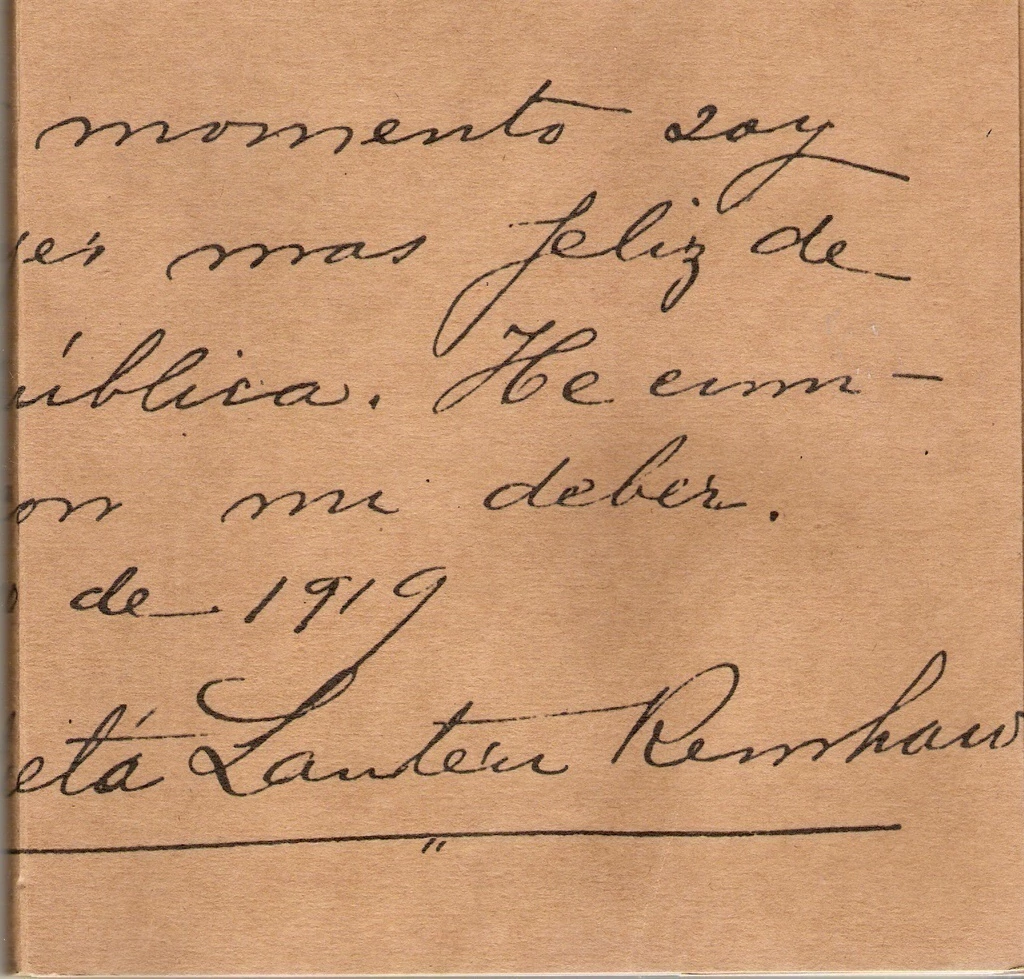 momento soy
mas feliz de
ública. He cum-
on mi deber.
de 1919
eta Lanteri Renshaw